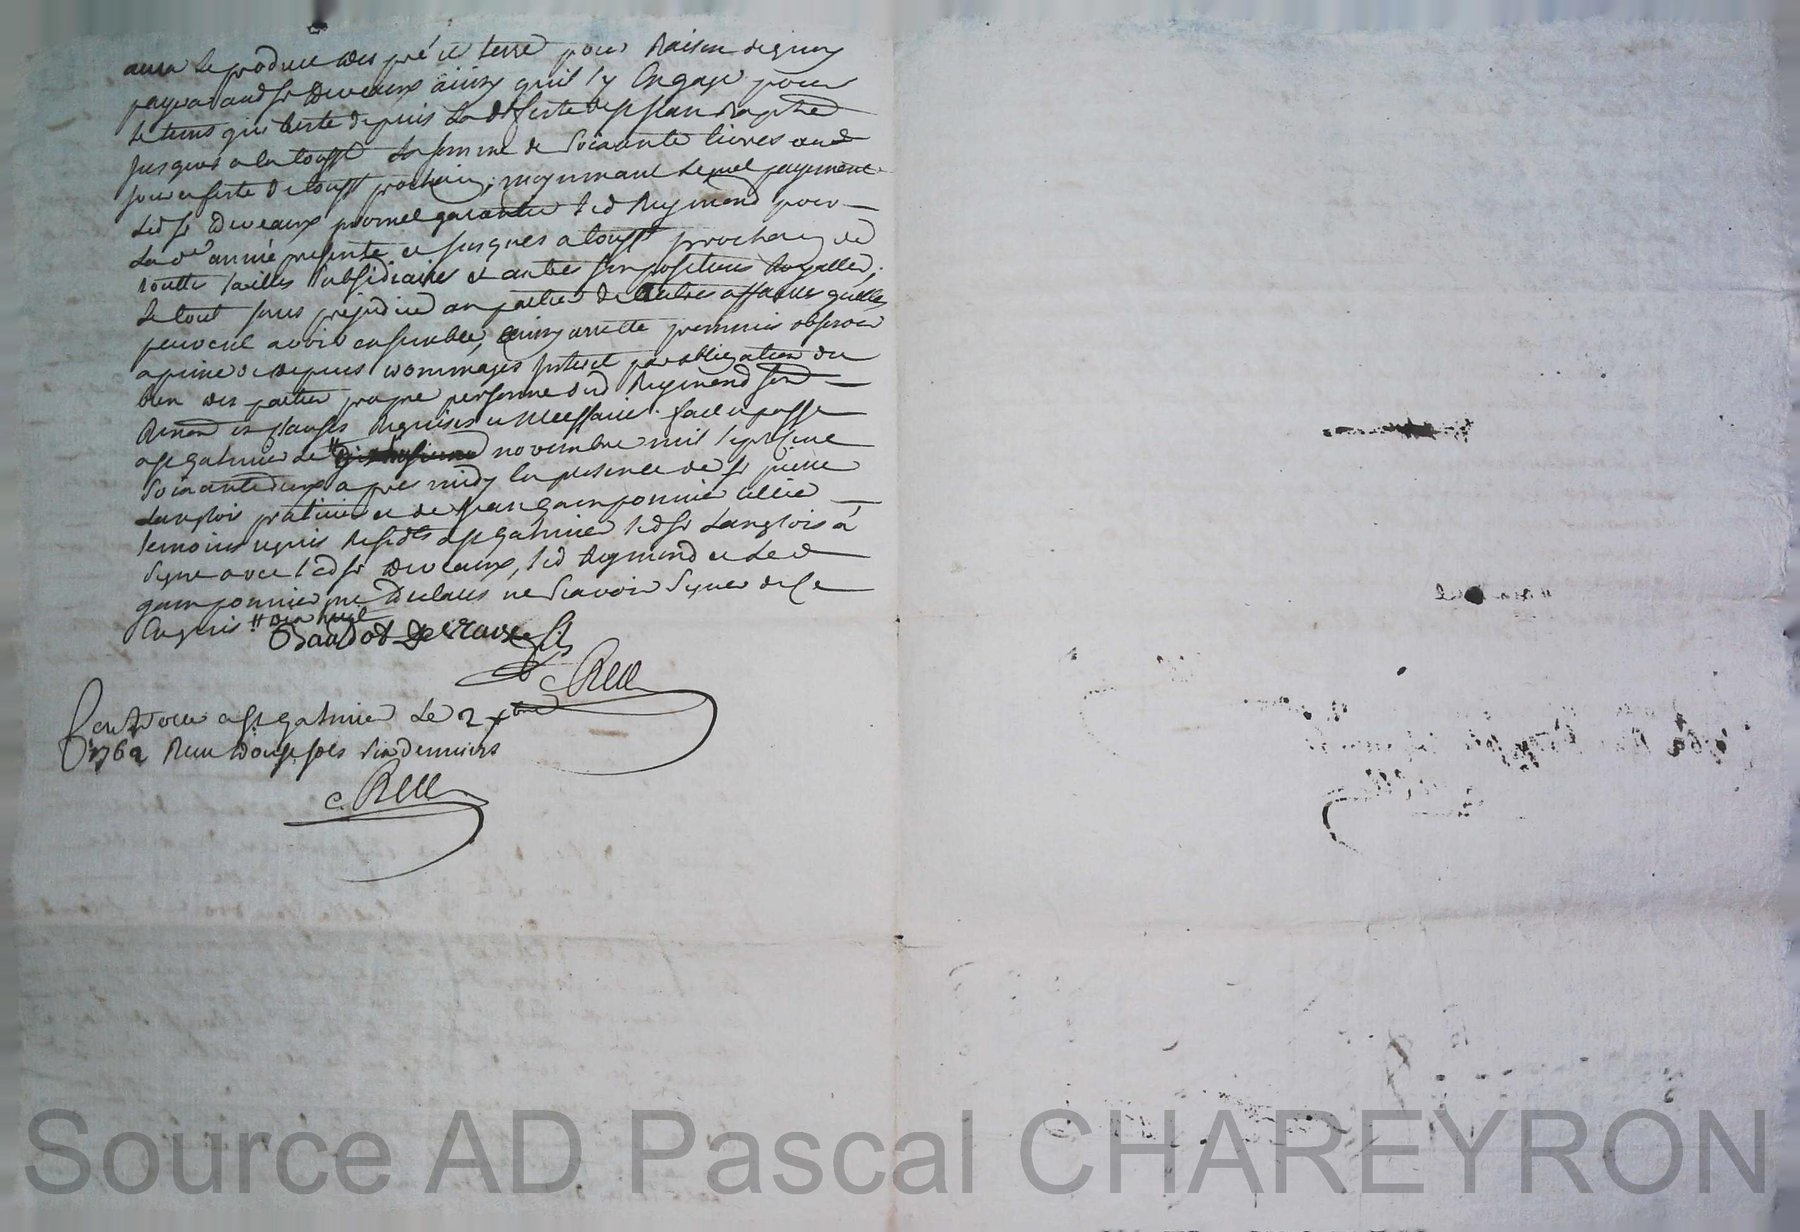 aura le produit des pré et terre pour Raison de quoy
payera aud sr Deveaux ainsy quil s'y Engage pour
le tems qui Reste depuis la de feste de st Jean Baptte
jusques a la tousst la somme de Soixante livres aud
jour et feste de toust prochain, moyennant lequel payement
led sr Deveaux promet garantir led Reymond pour
la de année presente et jusques a toust prochain de
toutte tailles subsidiaires et autres Impositions Royalles,
le tout sans prejudice au parties de autres affaires quelles
peuvent avoir ensemble, ainsy arretté promis observer
a peine de depens dommages Interet par obligation du
bien des parties propre personne dud Reymond
Renon et clauses Requises et Necessaires. fait et passé
a st galmier le novembre mil sept cent
soixante deux apres midy En presence de sr pierre
Langlois praticien et de Jean gamponnier
temoins requis Residts a st galmier led sr Langlois à
signé avec led sr Deveaux, led Reymond et led
gamponnier ont declaré ne sçavoir signer de ce
Enquis // dix huit
Baudot Deveaux fils
Rell
Controllé a st galmier le 2 xbre
1762 Reçu Douze sols six denniers
Rell
Source AD Pascal CHAREYRON